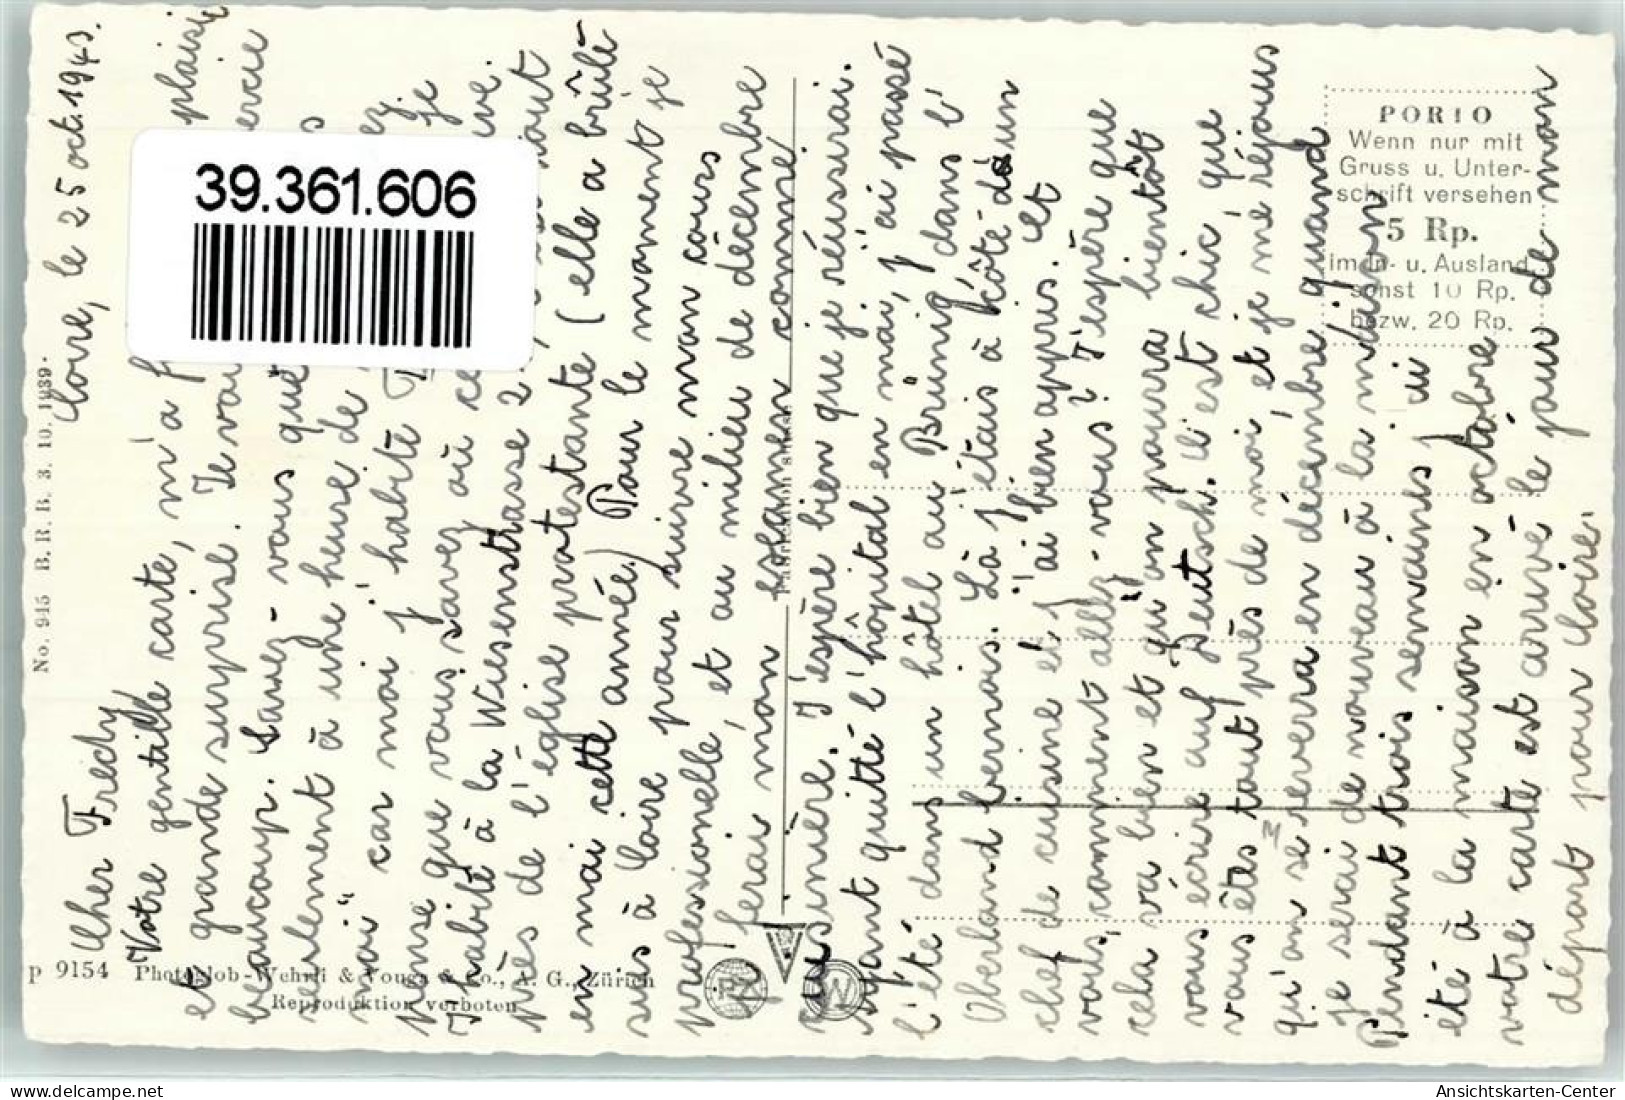 Coire, le 25 oct. 1943.
Cher Fredy
Votre gentille carte, m'a plaisir
et grande surprise. Je vous
beaucoup. Savez-vous que
seulement à une heure de
car moi j'habite je
pense que vous savez où
J'habite à la Wiesenstrasse 2. tout
près de l'église protestante (elle a brûlé
en mai cette année) Pour le moment je
suis à Coire pour suivre mon cours
professionelle, et au milieu de décembre
je ferai mon examen comme
cuisinière. J'espère bien que je réussirai.
Ayant quitté l'hôpital en mai, j'ai passé
l'été dans un hôtel au Brünig, dans l'
Oberland bernois. Là j'étais à côté d'un
chef de cuisine et j'ai bien appris. Et
vous, comment allez-vous? J'espère que
cela va bien et qu'on pourra bientôt
vous écrire auf Deutsch. C'est chic, que
vous êtes tout près de moi, et je me réjouis
qu'on se reverra en décembre quand
je serai de nouveau à la maison
Pendant trois semaines, j'ai
été à la maison en octobre
votre carte est arrivé le jour de mon
départ pour Coire.
PORTO
Wenn nur mit
Gruss u. Unter-
schrift versehen
5 Rp.
im In- u. Ausland
sonst 10 Rp.
bezw. 20 Rp.
39.361.606
No. 945 B. R. B. 3. 10. 1939.
p 9154 Photoglob-Wehrli & Vouga & Co., A. G., Zürich
Reproduktion verboten
Ansichtskarten-Center